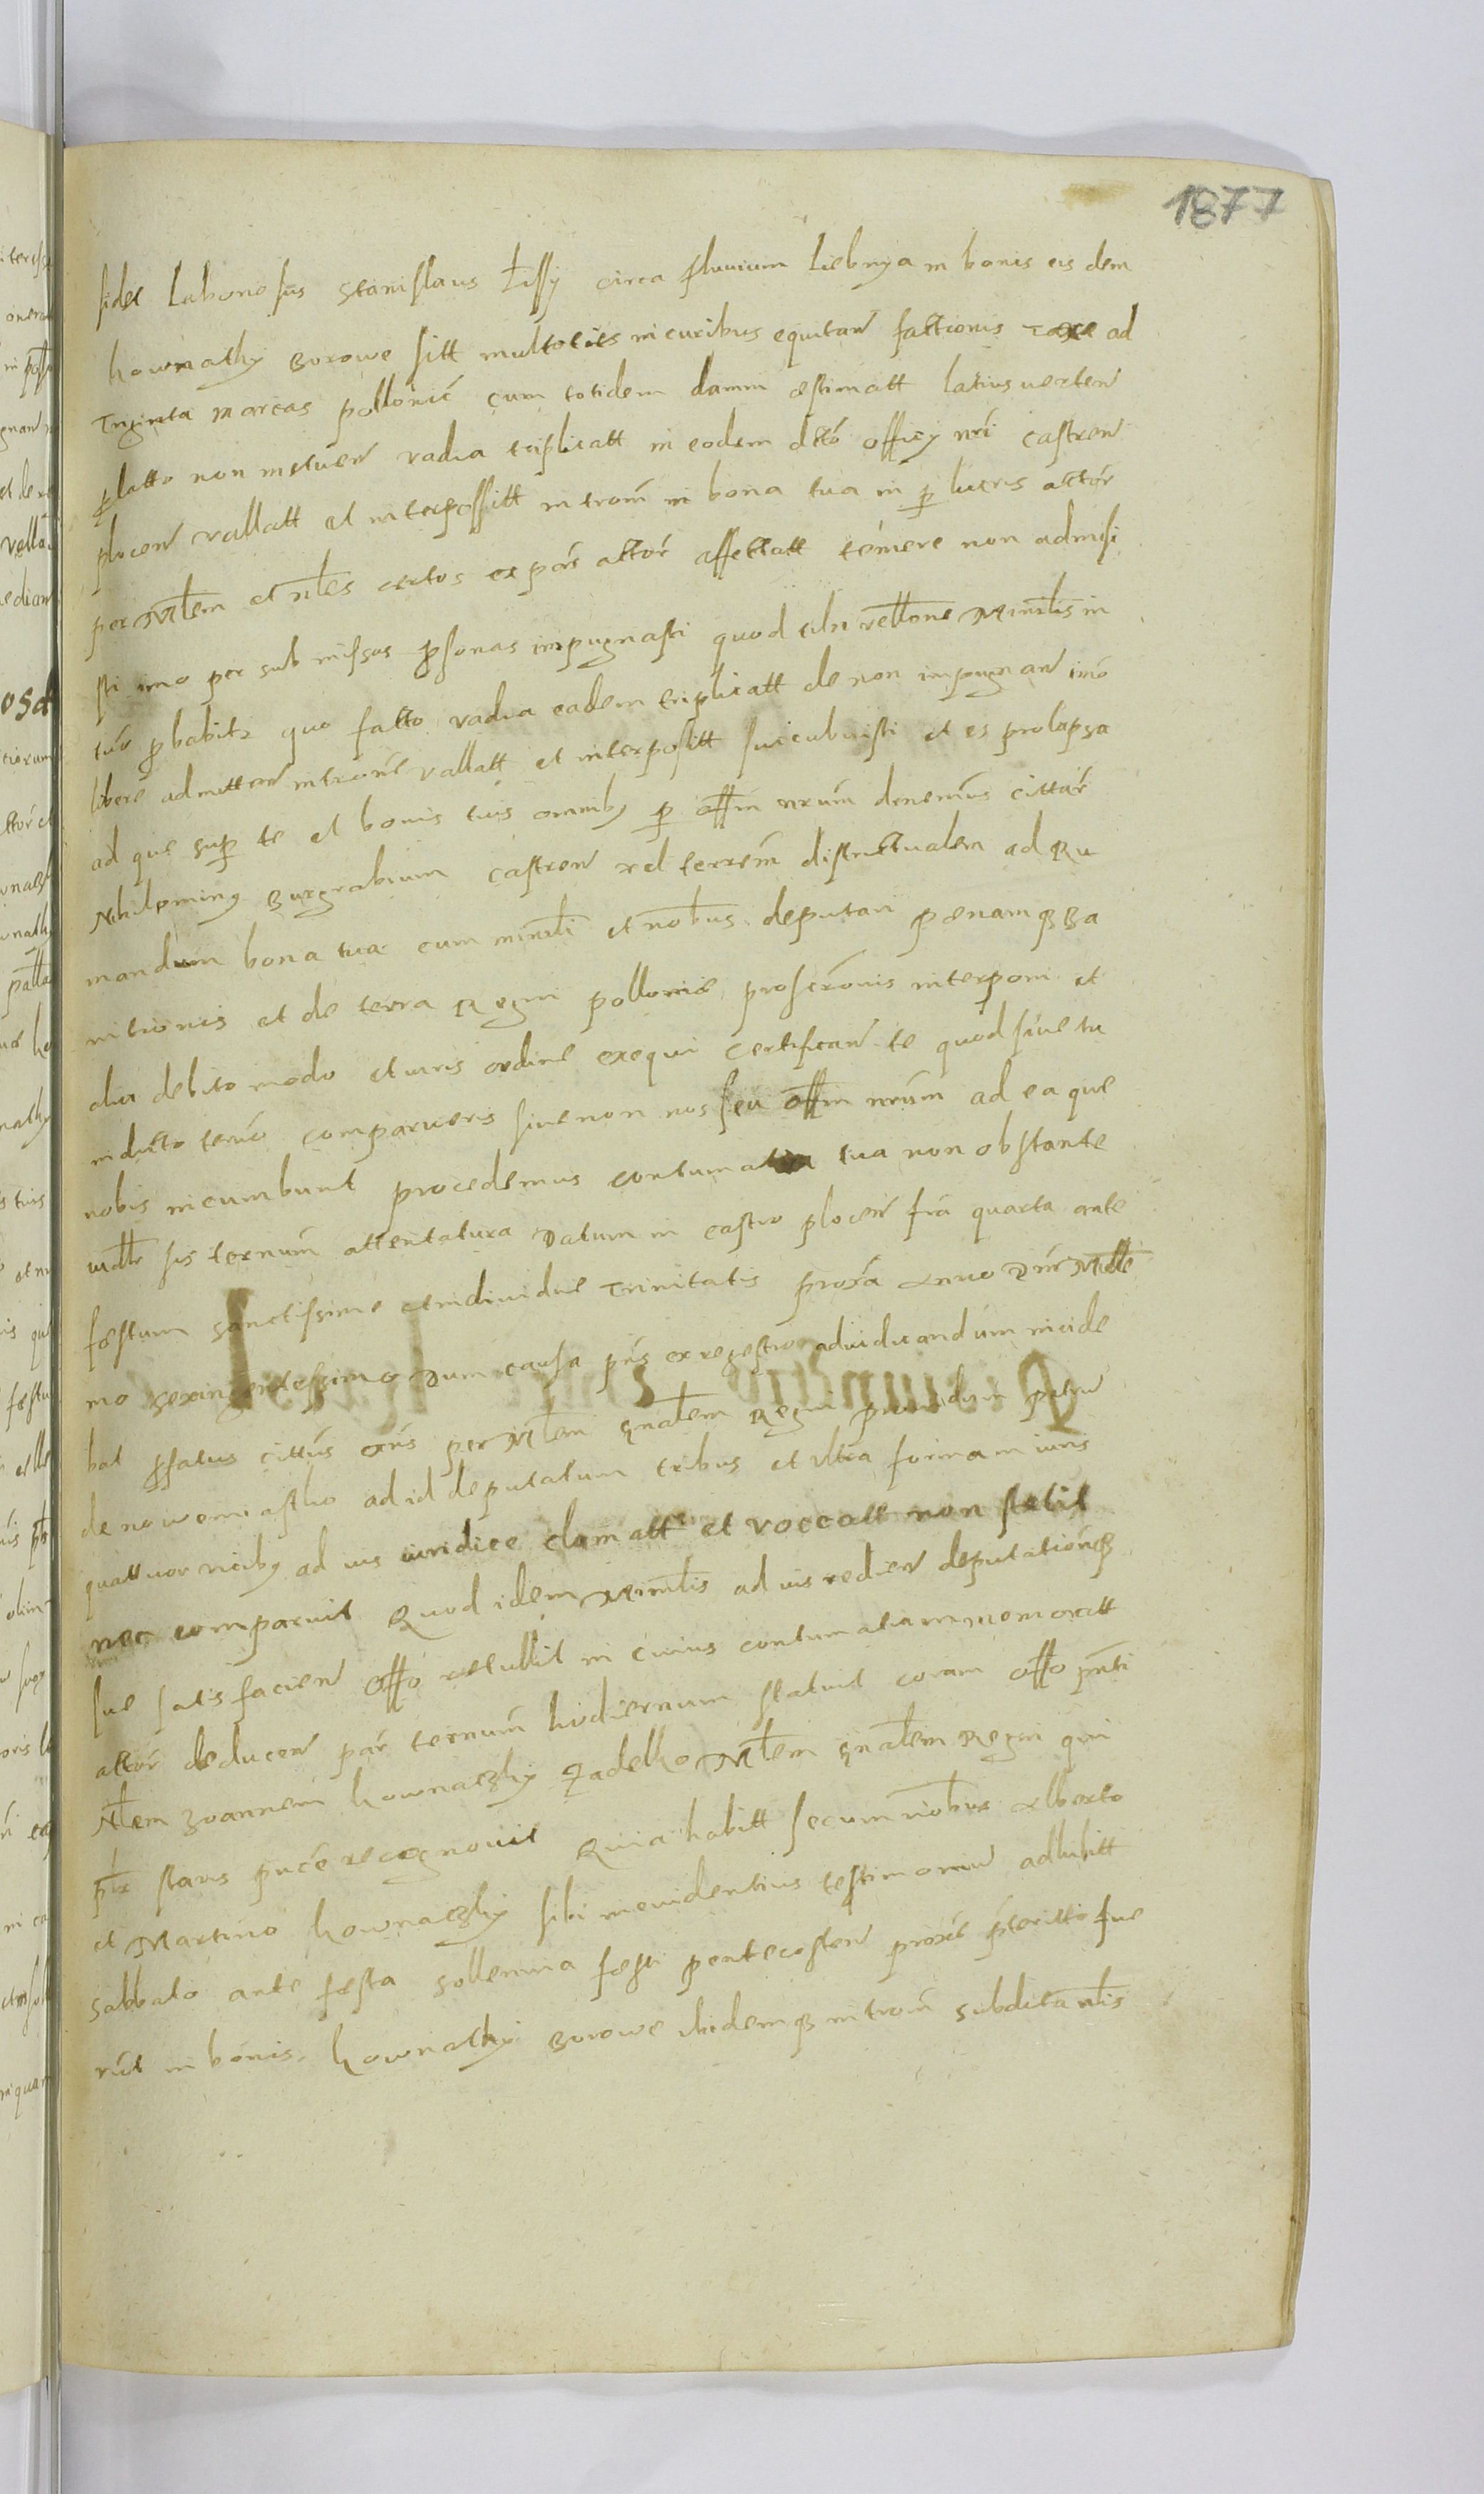 1877
sidet Laboriosus Stanislaus Lissy circa fluvium Liebnya in bonis eisdem
kownathy Borowe sitt multoties in curibus equitan factionis taxe ad
Triginta marcas pollonic cum totidem damni estimatt latius verten
placito non metuen vadia triplicatt in eodem dcto officy nri castren
plocen vallatt et interpossitt introm in bona tua in p lucris actor
per Mlem et nles certos ex par actor affectatt temere non admisi
sti imo per submissas psonas impugnasti quod tibi relone Minrlis in
tero pbabitr quo facto vadia eadem triplicatt de non impugnan imo
libere admitten introne vallatt et interpositt succubuisti et es prolapsa
ad que sup te et bonis tuis omnibg p offm nrum denemus cittar
Nihiloming Burgrabium castren vel terrem districtualem ad Ru
mandum bona tua cum minrli et nobus deputari pænamq Ba
nitionis et de terra Regni pollonie proscronis interponi et
alia debito modo et iuris ordine exequi certifican te quod siue tu
in dicto termo comparueris siue non nos seu offm nrum ad ea que
nobis incumbunt procedemus contumatia tua non obstante
iudlr sis ternum attentatura Datum in castro plocen fria quarta ante
festum sanctissime et individue Trinitatis proxa Anno Dnr Mille
mo sexingentessimo Dum causa pns ex regestro adiudicandum incide
bat pfatus cittus ons per Mlem gnalem Regni providum petru
de nowemiastho ad id deputatum tribus et ultra formam iuris
quattuor vicibg ad ius iuridice clamatt et voccatt non stetit
nec comparuit Quod idem Minrlis ad ius redien deputationiq
sue satisfacien offo retullit in cuius contumatiam memoratt
actor deducen par ternum hodiernum statuit coram offo pnti
Mlem Joannem kownaczky Zadelko Mlem gnalem Regni qui
ptr stans pnce recognovit Quia habitt secum nobus Alberto
et Martino kownaczky sibi in evidentius testimoniu adhibitt
sabbato ante festa sollemnia festi pentecosten proxe pteritto fue
rut in bonis kownathy Borowe ibidemq introm subditanlis